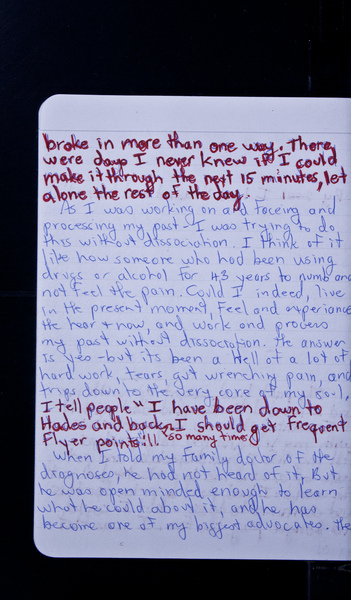 broke in more than one way. There
were days I never knew if I could
make it through the next 15 minutes, let
alone the rest of the day.
As I was working on and faceing and
processing my past I was trying to do
this without dissociation. I think of it
like how someone who had been using
drugs or alcohol for 43 years to numb and
not feel the pain. Could I indeed, live
in the present moment, feel and experiance
the hear + now, and work and process
my past without dissociation. The answer
is yes - but its been a Hell of a lot of
hard work, tears, gut wrenching pain, and
trips down to the very core of my soul,
I tell people I have been down to
Hades and back so many times I should get frequent
Flyer points!!!
When I told my family doctor of the
diagnoses, he had not heard of it, But
he was open minded enough to learn
what he could about it, and he has
become one of my biggest advocates. The